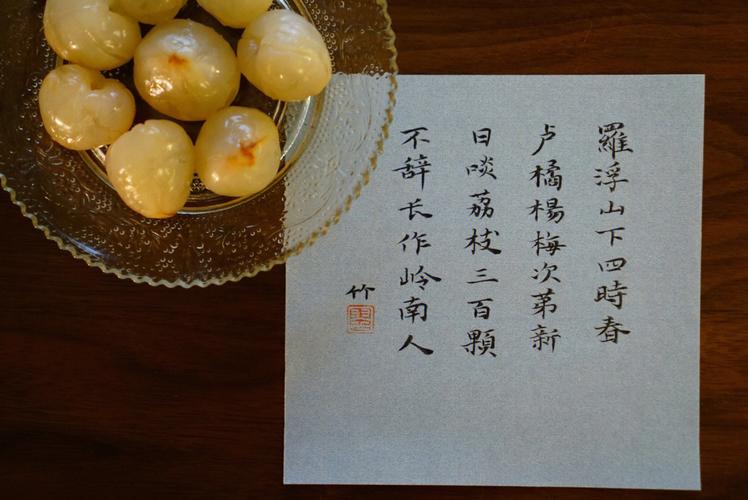 羅浮山下四時春
卢橘楊梅次第新
日啖荔枝三百顆
不辞长作岭南人
竹